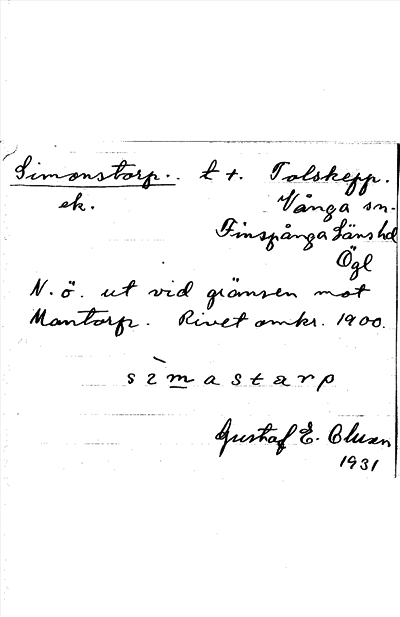 Simonstorp. t +. Tolskepp.
ek. Vånga sn.
Finspånga Läns hd
Ögl
N. ö. ut vid gränsen mot
Mantorp. Rivet omkr. 1900.
sìmastarp
Gustaf E. Olsson
1931